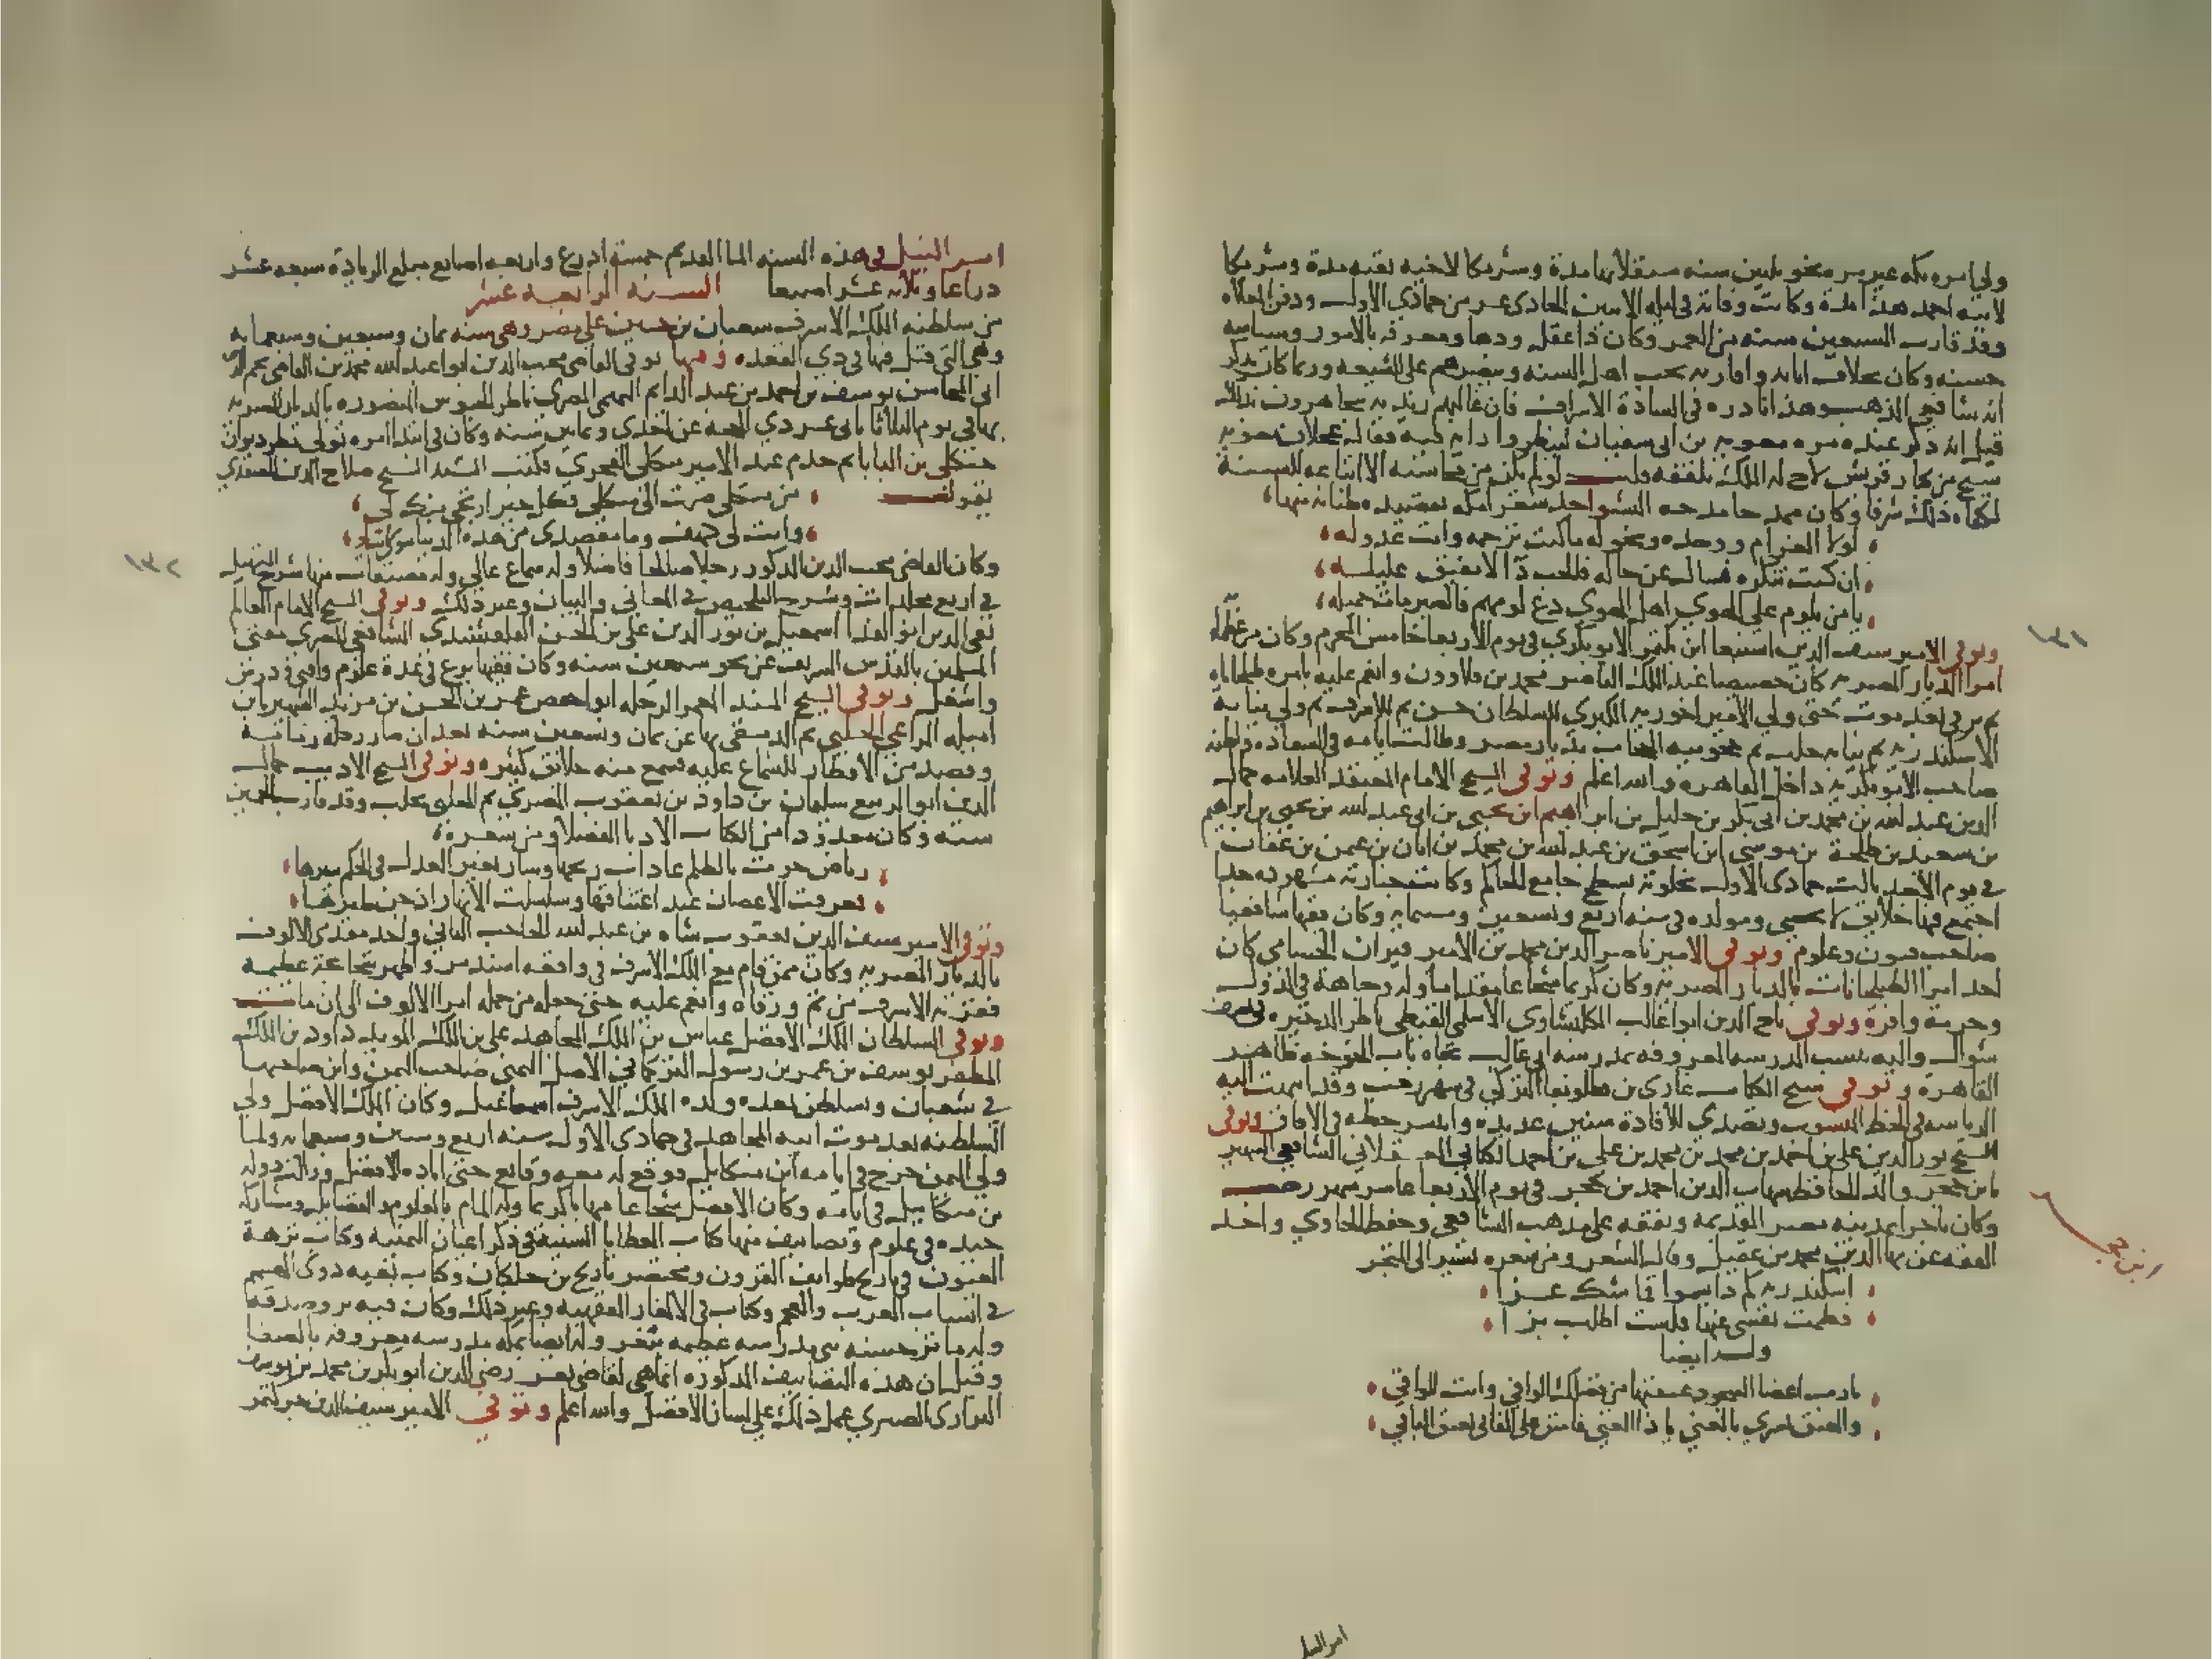 ولي امره مكه غير مره نحو ثلاثين سنه مستقلا بها مدة وشريكا لاخيه ثقبه مدة وشريكا
لابنه احمد هذا مدة وكانت وفاته في ليله الاثنين الحادي عشر من جمادي الاولي ودفن بالمعلاه
وقد قارب السبعين سنه من العمر وكان ذا عقل ودها ومعرفه بالامور وسياسه
حسنه وكان بخلاف ابايه واقاربه يحب اهل السنه وينصرهم علي الشيعه وربما كان يذكر
انه شافعي المذهب وهذا نادره في السادة الاشراف فان غالبهم زيديه يتجاهرون بذلك
قيل انه ذكر عنده مره معويه بن ابي سفيان لينظروا رايه فيه فقال عجلان معويه
شيخ من كبار قريش لاح له الملك فتلقفه قلت لو لم يكن من محاسنه الا اتباعه للسنة
لكفاه ذلك شرفا وكان ممدحا مدحه
لولا الغرام ووجده ونحوله ما كنت ترحمه وانت عذوله
ان كنت تنكره فسل عن حاله فالحب دآ لا يفيق عليله
يا من يلوم علي الهوي اهل الهوي دع لومهم فالصبر مات جميله
وتوفي الامير سيف الدين اسنبغا ابن بكتمر الابوبكري في يوم الاربعا خامس المحرم وكان من عظما
امرا الديار المصريه كان خصيصا عند الملك الناصر محمد بن قلاوون وانعم عليه بامره طبلخاناه
ثم ترقي بعد موته حتي ولي الامير اخوريه الكبري للسلطان حسن ثم للاشرف ثم ولي نيابة
الاسكندريه ثم نيابه حلب ثم حجوبيه الحجاب بديار مصر وطالت ايامه في السعاده
صاحب الابوبكريه داخل القاهره والله اعلم وتوفي الشيخ الامام المعتقد العلامه جمال
الدين عبد الله بن محمد بن ابي بكر بن خليل بن ابراهيم ابن يحيي بن ابي عبد الله بن يحيي بن ابراهيم
بن سعيد بن طلحة بن موسي ابن اسحق بن عبد الله بن محمد بن ابان بن عثمن بن عفان
في يوم الاحد ثالث جمادي الاولي بخلوته بسطح جامع الحاكم وكانت جنازته مشهوده جدا
اجتمع فيها خلايق لا تحصي ومولده في سنه اربع وتسعين وستمايه وكان فقيها شافعيا
صاحب فنون وعلوم وتوفي الامير ناصر الدين محمد بن الامير قيران الحسامي كان
احد امرا الطبلخانات بالديار المصريه وكان كريما شجاعا مقداما وله وجاهة في الدول
وحرمة وافره وتوفي تاج الدين ابو غالب الكلبشاوي الاسلمي القبطي ناظر الذخيره في نصف
شوال واليه تنسب المدرسه المعروفه بمدرسه ابي غالب تجاه باب الخوخه ظاهر
القاهره وتوفي شيخ الكتاب غازي بن قطلوبغا التركي في شهر رجب وقد انتهت اليه
الرياسه في الخط المنسوب وتصدي للافادة سنين عديده وانتشر خطه في الافاق وتوفي
الشيخ نور الدين علي بن احمد بن محمد بن محمد بن علي بن احمد الكناني العسقلاني الشافعي الشهير
بابن حجر والد الحافظ شهاب الدين احمد بن حجر في يوم الاربعا عاشر شهر رجب
وكان تاجرا بمدينه مصر القديمه وتفقه علي مذهب الشافعي وحفظ الحاوي واخذ
الفقه عن بها الدين محمد بن عقيل وقال الشعر ومن شعره يشير الي المتجر
اسكندريه كم ذا يسموا قماشك عزا
فطمت نفسي عنها فلست اطلب بزا
وله ايضا
يا رب اعضا السجود عتقتها من فضلك الوافي وانت الواقي
والعتق يسري بالغني يا ذا الغني فامنن علي الفاني بعتق الباقي
ابن حجر
١٣١
امر النيل
امر النيل في هذه السنه الما القديم خمسة اذرع واربعه اصابع مبلغ الزيادة سبعه عشر
ذراعا وثلاثه عشر اصبعا السنه الرابعه عشر
من سلطنه الملك الاشرف شعبان بن حسين علي مصر وهي سنه ثمان وسبعين وسبعمايه
وهي التي قتل فيها في ذي القعده وفيها توفي القاضي محب الدين ابو عبد الله محمد بن القاضي نجم الدين
ابي المحاسن يوسف بن احمد بن عبد الدايم التيمي المصري ناظر الجيوش المنصوره بالديار المصريه
بها في يوم الثلاثا ثاني عشر ذي الحجه عن احدي وثمانين سنه وكان في ابتدا امره تولي نظر ديوان
جنكلي بن البابا ثم خدم عند الامير منكلي الفخري فكتب اليه الشيخ صلاح الدين الصفدي
يقول من جنكلي صرت الي منكلي فكل خير ارتجي منك لي
وانت لي كهف وما مقصدي من هذه الدنيا سوي ان
وكان القاضي محب الدين المذكور رجلا صالحا فاضلا وله سماع عالي وله مصنفات منها شرح التسهيل
في اربع مجلدات وشرح التلخيص في المعاني والبيان وغير ذلك وتوفي الشيخ الامام العالم
تقي الدين ابو الفدا اسمعيل بن نور الدين علي بن الحسن القلقشندي الشافعي المصري مفتي
المسلمين بالقدس الشريف عن نحو سبعين سنه وكان فقيها برع في عدة علوم وافتي ودرس
واشغل وتوفي الشيخ المسند المعمر الرحله ابو حفص عمر بن الحسن بن مزيد الشهير بابن
اميله المراغي الحلبي ثم الدمشقي بها عن ثمان وتسعين سنه بعد ان صار رحله زمانه
وقصد من الاقطار للسماع عليه فسمع منه خلايق كثيره وتوفي الشيخ الاديب جمال
الدين ابو الربيع سليمان بن داود بن يعقوب المصري ثم الحلبي بحلب وقد قارب الخمسين
سنه وكان معدودا من الكتاب الادبا الفضلا ومن شعره
رياض جرت بالظلم عادات ريحها وسار بغير العدل في الحكم سيرها
تفرقت الاغصان عند اعتناقها وسلسلت الانهار اذ جن طيرها
وتوفي الامير سيف الدين يعقوب شاه بن عبد الله الحاجب الثاني واحد مقدمي الالوف
بالديار المصريه وكان ممن قام مع الملك الاشرف في واقعه اسندمر واظهر شجاعة عظيمة
فقربه الاشرف من ثم ورقاه وانعم عليه حتي جعله من جمله امرا الالوف الي ان مات
وتوفي السلطان الملك الافضل عباس بن الملك المجاهد علي بن الملك المويد داود بن الملك
المظفر يوسف بن عمر بن رسول التركماني الاصل اليمني صاحب اليمن وابن صاحبها
في شعبان وتسلطن بعده ولده الملك الاشرف اسماعيل وكان الملك الافضل ولي
السلطنه بعد موت ابيه المجاهد في جمادي الاولي سنه اربع وستين وسبعمايه ولما
ولي اليمن خرج في ايامه ابن ميكاييل فوقع له معه وقايع حتي اباده الافضل وزالت دوله
بن ميكاييل في ايامه وكان الافضل شجاعا مهابا كريما وله المام بالعلوم والفضايل ومشاركه
جيده في علوم وتصانيف منها كتاب العطايا السنية في ذكر اعيان اليمنيه وكتاب نزهة
العيون في تاريخ طوايف القرون ومختصر تاريخ بن خلكان وكتاب بغيه ذوي الهمم
في انساب العرب والعجم وكتاب في الالغاز الفقهيه وغير ذلك وكان فيه بر وصدقه
وله ماثر حسنه بني مدرسه عظيمه بتعز وله ايضا بمكه مدرسه معروفه بالصفا
وقيل ان هذه التصانيف المذكوره انما هي لقاضي تعز رضي الدين ابو بكر بن محمد بن يوسف
الصبري عمل ذلك علي لسان الافضل والله اعلم وتوفي الامير سيف الدين
١٣٢